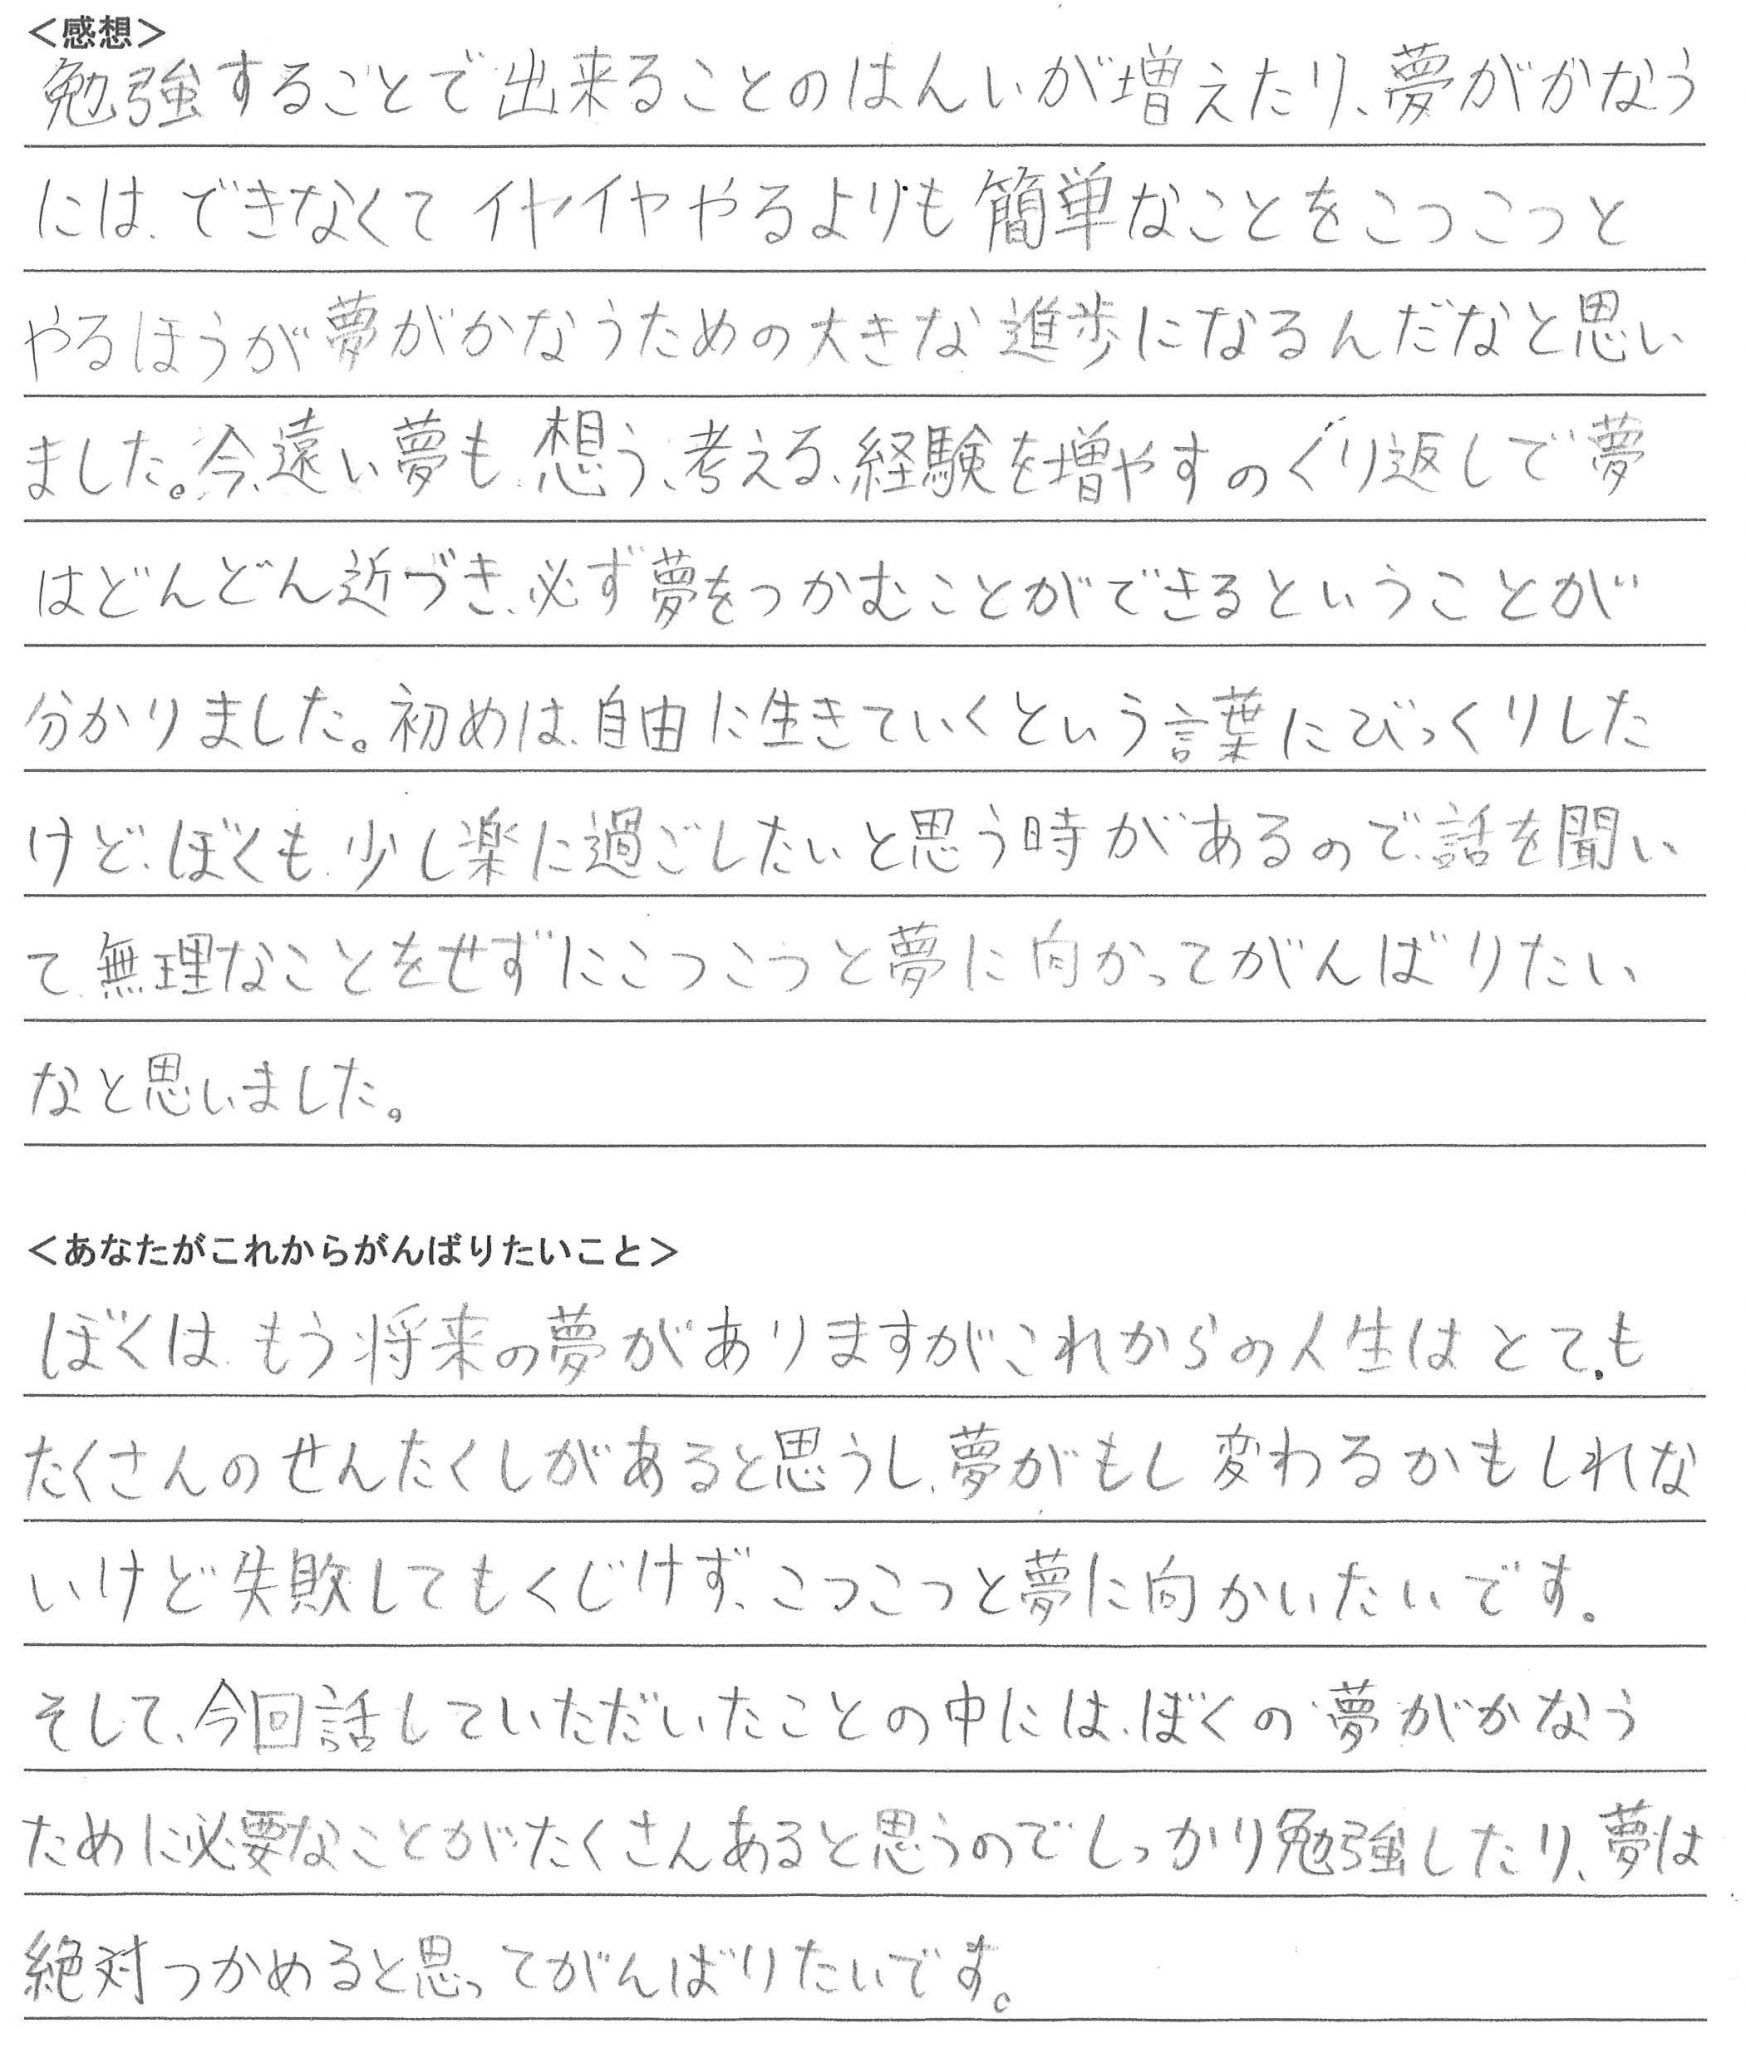 ＜感想＞
勉強することで出来ることのはんいが増えたり、夢がかなう
には、できなくてイヤイヤやるよりも簡単なことをこつこつと
やるほうが夢がかなうための大きな進歩になるんだなと思い
ました。今、遠い夢も、想う、考える、経験を増やすのくり返しで夢
はどんどん近づき、必ず夢をつかむことができるということが
分かりました。初めは、自由に生きていくという言葉にびっくりした
けど、ぼくも、少し楽に過ごしたいと思う時があるので、話を聞い
て、無理なことをせずにこつこつと夢に向かってがんばりたい
なと思いました。
＜あなたがこれからがんばりたいこと＞
ぼくは、もう将来の夢がありますがこれからの人生はとても
たくさんのせんたくしがあると思うし、夢がもし変わるかもしれな
いけど失敗してもくじけず、こつこつと夢に向かいたいです。
そして、今回話していただいたことの中には、ぼくの夢がかなう
ために必要なことがたくさんあると思うのでしっかり勉強したり、夢は
絶対つかめると思ってがんばりたいです。